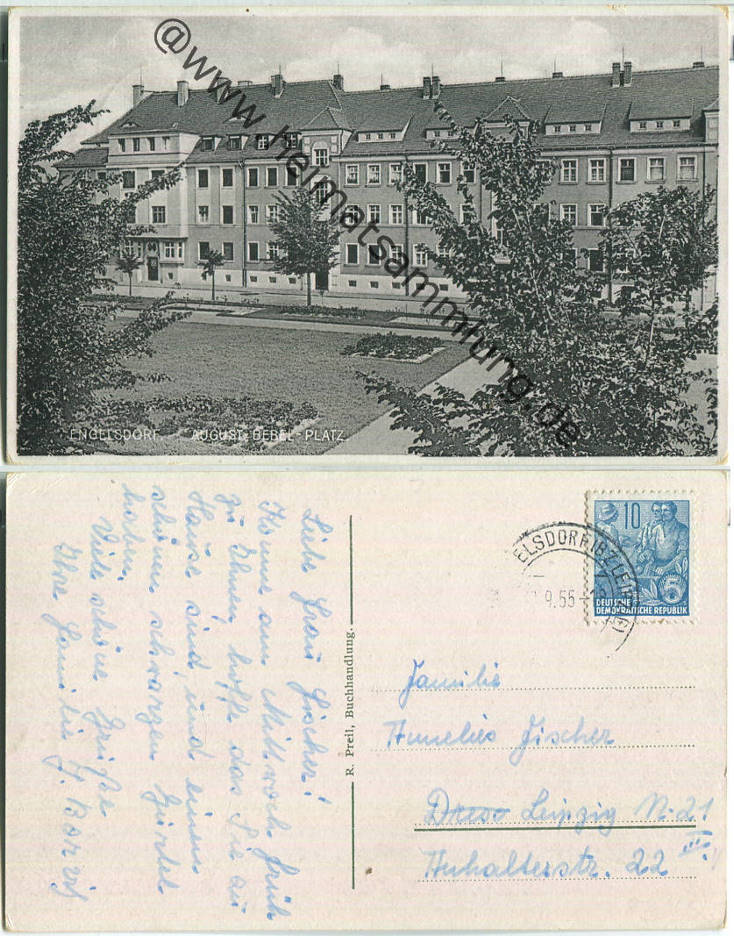 @www.heimatsammlung.de
ENGELSDORF. AUGUST-BEBEL-PLATZ
Liebe Frau Fischer!
Komme am Mittwoch früh
zu Ihnen, hoffe das Sie zu
Hause sind und einen
schönen schwarzen Gürtel
haben.
Viele schöne Grüße
Ihre Familie
R. Preil, Buchhandlung.
10
5
DEUTSCHE
DEMOKRATISCHE REPUBLIK
ELSDORF (BZ LEIPZIG)
9.55
Familie
Annelies Fischer
Leipzig N. 21
Anhalterstr. 22 III.